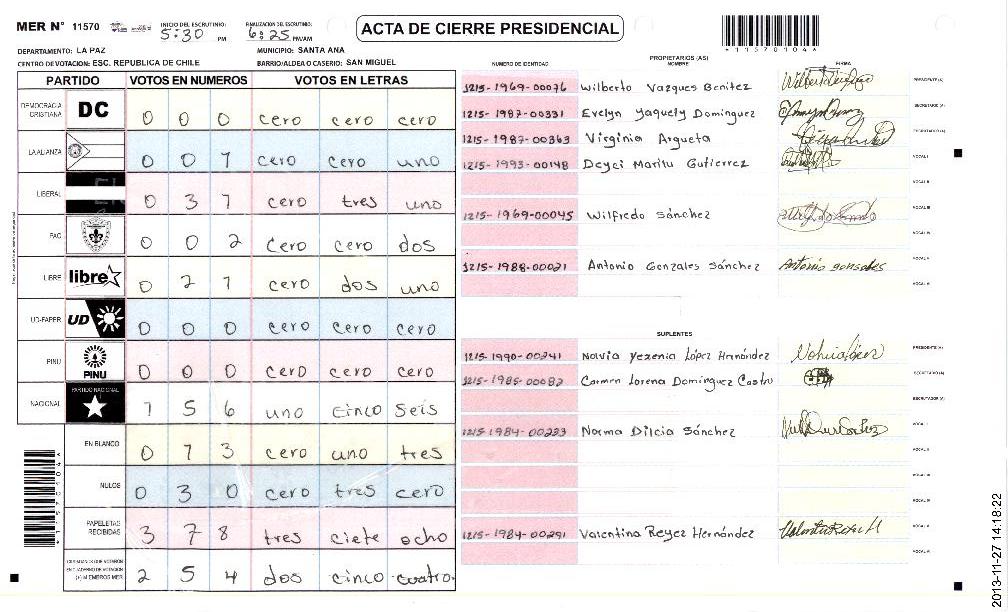 MER N° 11570 INICIO DEL ESCRUTINIO: 5:30 PM FINALIZACION DEL ESCRUTINIO: 6:25 PM/AM ACTA DE CIERRE PRESIDENCIAL
DEPARTAMENTO: LA PAZ MUNICIPIO: SANTA ANA
CENTRO DE VOTACION: ESC. REPUBLICA DE CHILE BARRIO/ALDEA O CASERIO: SAN MIGUEL
PARTIDO VOTOS EN NUMEROS VOTOS EN LETRAS
DEMOCRACIA CRISTIANA DC 0 0 0 cero cero cero
LA ALIANZA 0 0 1 cero cero uno
LIBERAL 0 3 1 cero tres uno
PAC 0 0 2 cero cero dos
LIBRE libre 0 2 1 cero dos uno
UD-FAPER UD 0 0 0 cero cero cero
PINU PINU 0 0 0 cero cero cero
NACIONAL PARTIDO NACIONAL 1 5 6 uno cinco seis
EN BLANCO 0 1 3 cero uno tres
NULOS 0 3 0 cero tres cero
PAPELETAS RECIBIDAS 3 7 8 tres ciete ocho
CIUDADANOS QUE VOTARON EN CUADERNO DE VOTACION (+) MIEMBROS MER 2 5 4 dos cinco cuatro.
NUMERO DE IDENTIDAD PROPIETARIOS (AS) NOMBRE FIRMA
1215-1969-00076 Wilberto Vazques Benitez PRESIDENTE (A)
1215-1987-00331 Evelyn Yaquely Dominguez SECRETARIO (A)
1215-1987-00363 Virginia Argueta ESCRUTADOR (A)
1215-1993-00148 Deyci Maritu Gutierrez VOCAL I
VOCAL II
1215-1969-00045 Wilfredo Sánchez VOCAL III
VOCAL IV
1215-1988-00021 Antonio Gonzales Sánchez Antonio gonsales VOCAL V
VOCAL VI
SUPLENTES
1215-1990-00241 Nolvia Yezenia López Hernández PRESIDENTE (A)
1215-1985-00082 Carmen Lorena Dominguez Castro SECRETARIO (A)
ESCRUTADOR (A)
1215-1984-00233 Norma Dilcia Sánchez VOCAL I
VOCAL II
VOCAL III
VOCAL IV
1215-1984-00291 Valentina Reyez Hernández VOCAL V
VOCAL VI
1115701041
2013-11-27 14:18:22